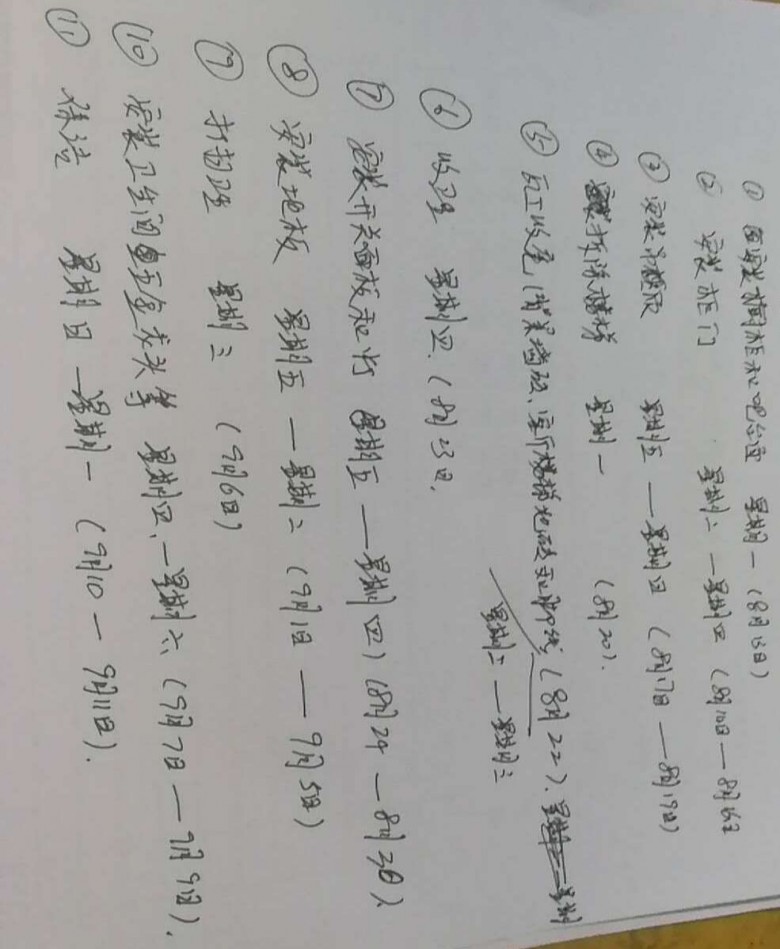 ① 安装橱柜和吧台面 星期一 (8月13日)
② 安装柜门 星期二 — 星期四 (8月14日 — 8月16日
③ 安装吊顶 星期五 — 星期日 (8月17日 — 8月19日)
④ 拆除楼梯 星期一 (8月20).
⑤ 瓦工收尾 (背景墙砖、客厅楼梯地砖和脚线 (8月22). 星期
星期二 — 星期三
⑥ 收卫生 星期四. (8月23日.
⑦ 安装开关面板和灯 星期五 — 星期四) (8月24 — 8月30).
⑧ 安装地板 星期五 — 星期二 (9月1日 — 9月5日)
⑨ 打扫卫生 星期三 (9月6日)
⑩ 安装卫生间五金龙头等 星期四、— 星期六 (9月7日 — 9月9日).
⑪ 保洁 星期日 — 星期一 (9月10 — 9月11日).